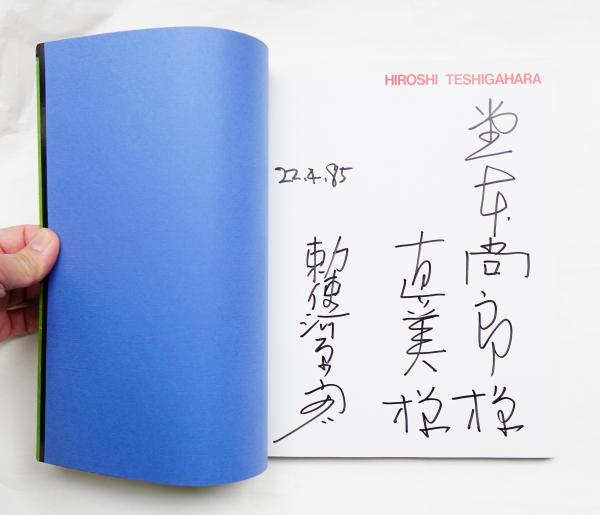 HIROSHI TESHIGAHARA
堂本尚郎様
直美様
22.4.85
勅使河原宏